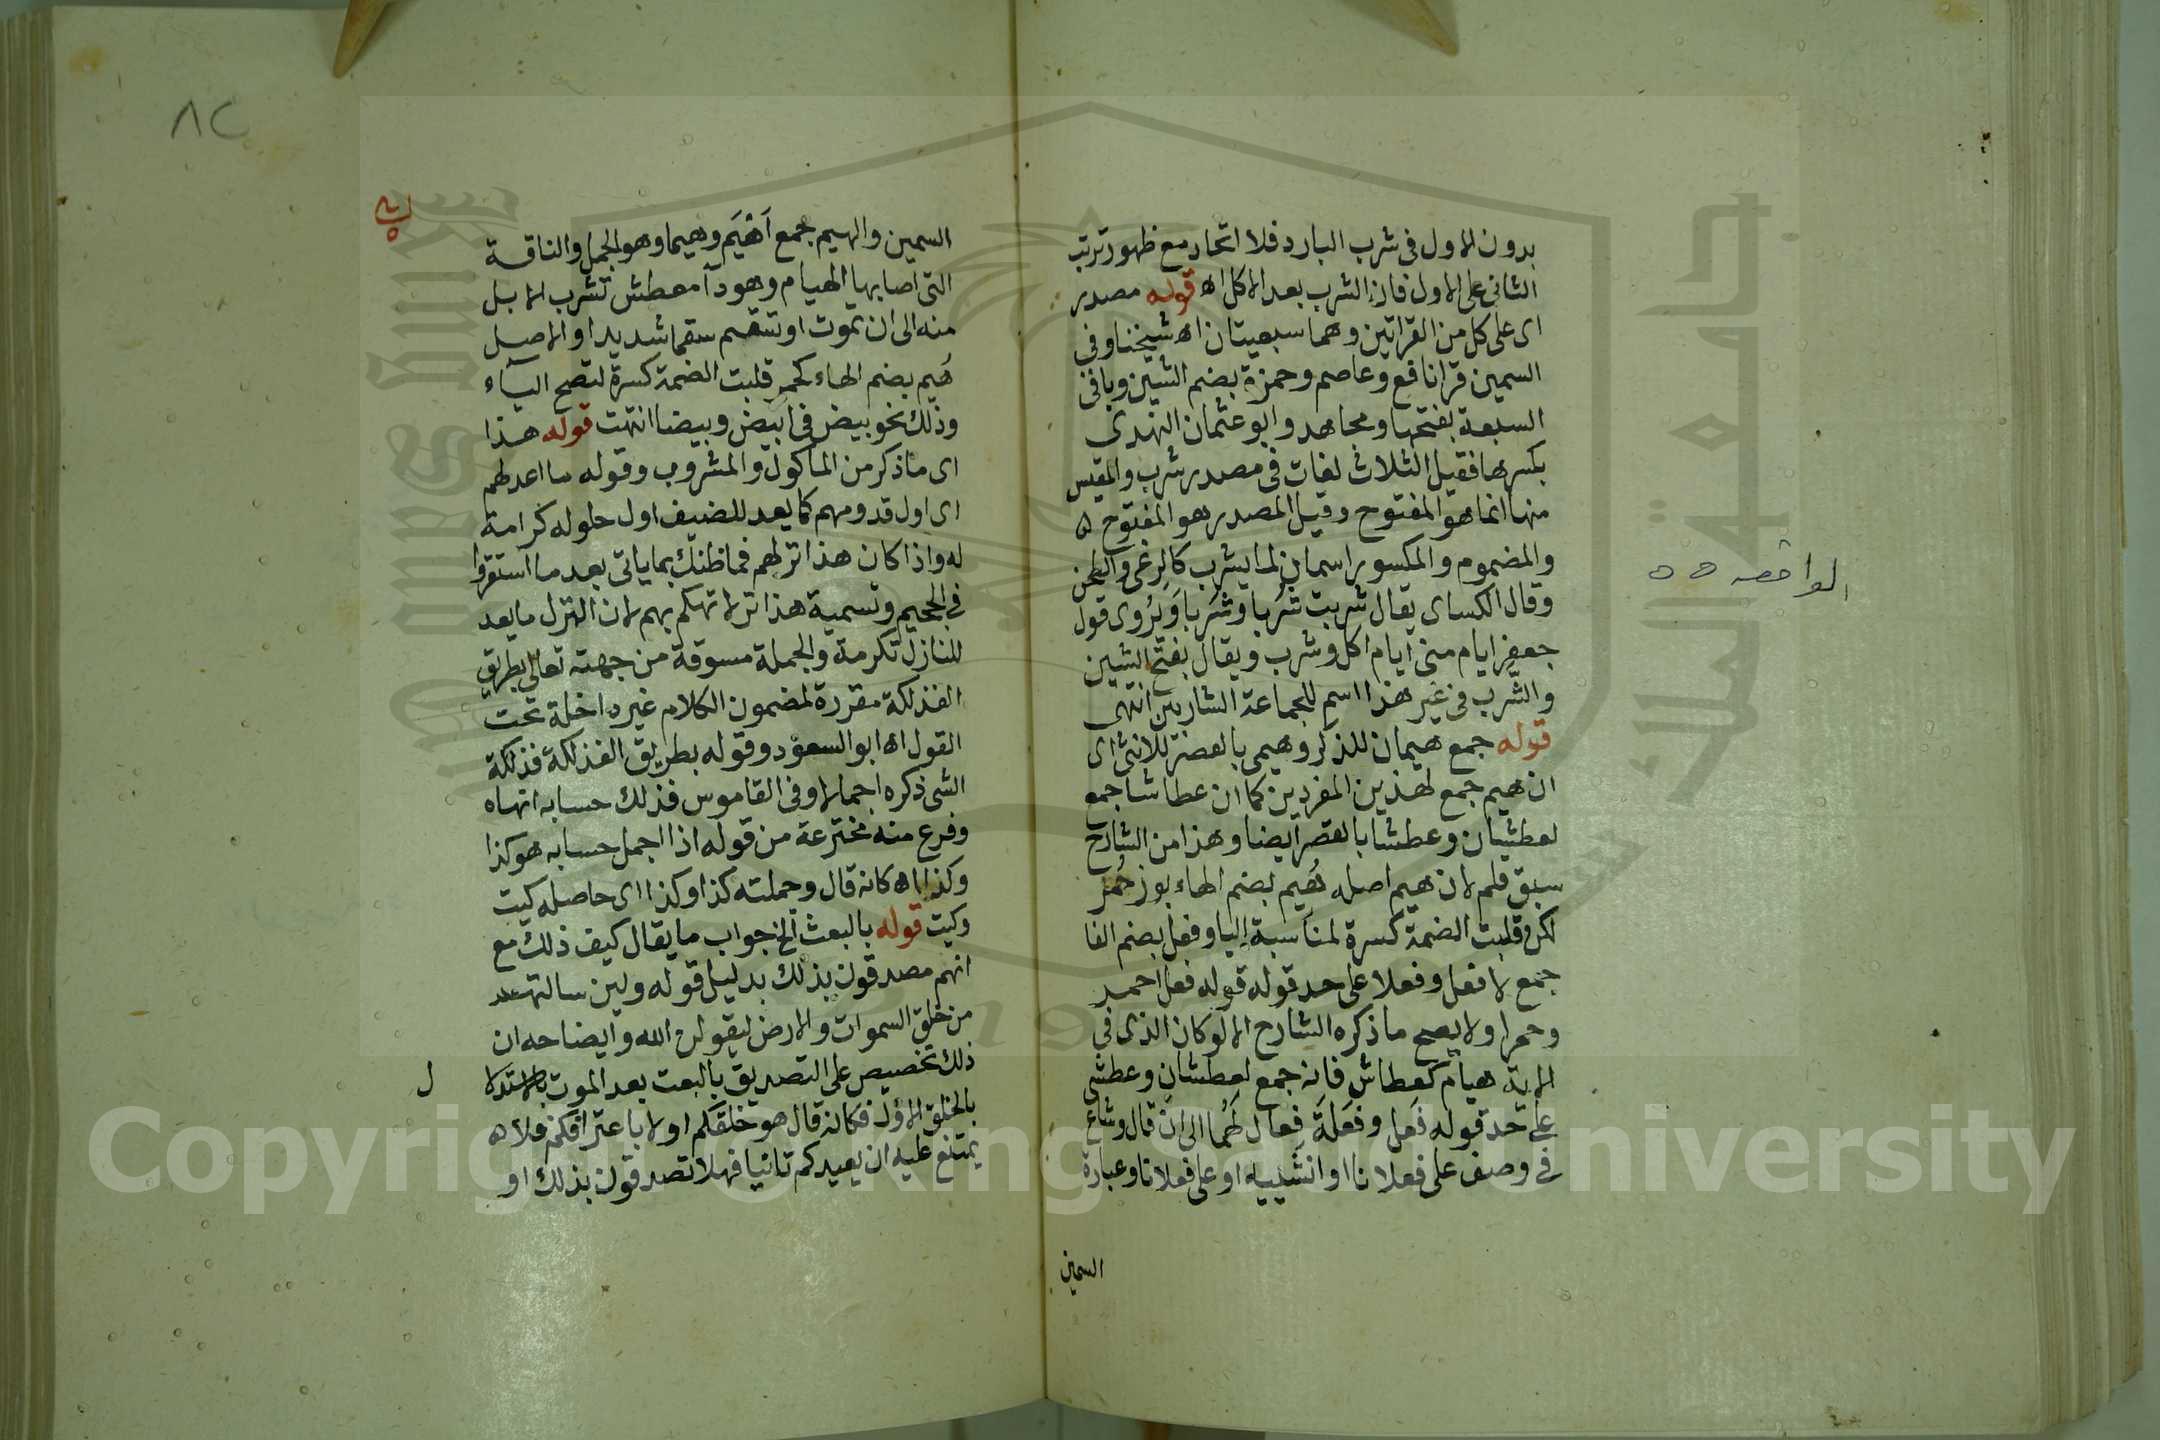 بدون الاول فى شرب البارد فلا اتحاد مع ظهور ترتب
الثانى على الاول فان الشرب بعد الاكل اه قوله مصدر
اى على كل من القراتين وهما سبعيتان اه شيخنا وفى
السمين قرا نافع وعاصم وحمزة بضم الشين وباقى
السبعة بفتحها ومجاهد وابو عثمان النهدى
بكسرها فقيل الثلاث لغات فى مصدر شرب والمقيس
منها انما هو المفتوح وقيل المصدر هو المفتوح
والمضموم والمكسور اسمان لما يشرب كالرعى والطحن
وقال الكساى يقال شربت شربا وشربا ويروى قول
جعفر ايام منى ايام اكل وشرب ويقال بفتح الشين
والشرب فى غير هذا اسم للجماعة الشاربين انتهى
قوله جمع هيمان للذكر وهيمى بالقصر للانثى اى
ان هيم جمع لهذين المفردين كما ان عطاشا جمع
لعطشان وعطشا بالقصر ايضا وهذا من الشارح
سبق قلم لان هيم اصله هُيم بضم الهاء بوزن حُمْر
لكن قلبت الضمة كسرة لمناسبة اليا وفعل بضم الفا
جمع لافعل وفعلا على حد قوله قوله فعل احمد
وحمرا ولا يصح ما ذكره الشارح الا لو كان الذى فى
الاية هيام كعطاش فانه جمع لعطشان وعطشى
على حد قوله فعل وفعلة فعال لهما الى ان قال وشاع
فى وصف على فعلانا او انثييه او على فعلانا وعبارة
السمين
الواقعه ٥٥
٨٢
السمين والهيم جمع اَهْيَم وهيما وهو الجمل والناقة
التى اصابها الهيام وهو دآ معطش تشرب الابل
منه الى ان تموت او تسقم سقما شديدا والاصل
هُيم بضم الهاء كحمر قلبت الضمة كسرة لتصح اليآء
وذلك نحو بيض فى ابيض وبيضا انتهت قوله هذا
اى ما ذكر من الماكول والمشروب وقوله ما اعد لهم
اى اول قدومهم كما يعد للضيف اول حلوله كرامة
له واذا كان هذا نزلهم فما ظنك بما ياتى بعد ما استقروا
فى الجحيم وتسمية هذا نزلا تهكم بهم لان النزل ما يعد
للنازل تكرمة والجملة مسوقة من جهته تعالى بطريق
الفذلكة مقررة لمضمون الكلام غير داخلة تحت
القول اه ابو السعود وقوله بطريق الفذلكة فذلكة
الشى ذكره اجمالا وفى القاموس فذلك حسابه انهاه
وفرع منه مخترعة من قوله اذا اجمل حسابه هو كذا
وكذا اه كانه قال وجملته كذا وكذا اى حاصله كيت
وكيت قوله بالبعث الخ جواب ما يقال كيف ذلك مع
انهم مصدقون بذلك بدليل قوله ولين سالتهم
من خلق السموات والارض ليقولن الله وايضاحه ان
ذلك تخصيص على التصديق بالبعث بعد الموت بالاستدلا
ل
بالخلق الاول فكانه قال هو خلقكم اولا باعترافكم فلا
يمتنع عليه ان يعيدكم ثانيا فهلا تصدقون بذلك او
Copyright © King Saud University